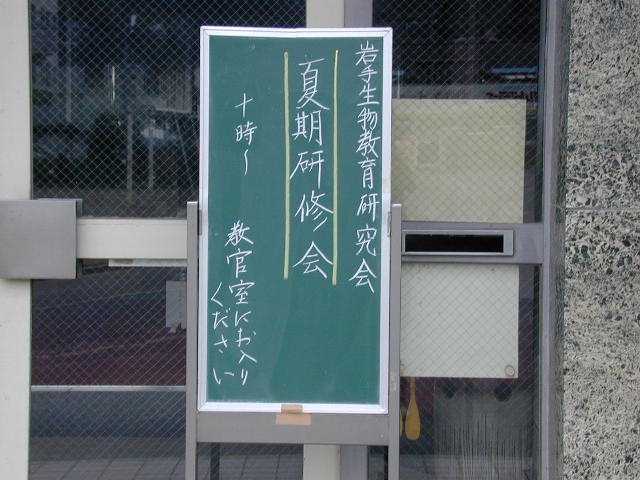 岩手生物教育研究会
夏期研修会
十時〜
教官室にお入り
ください